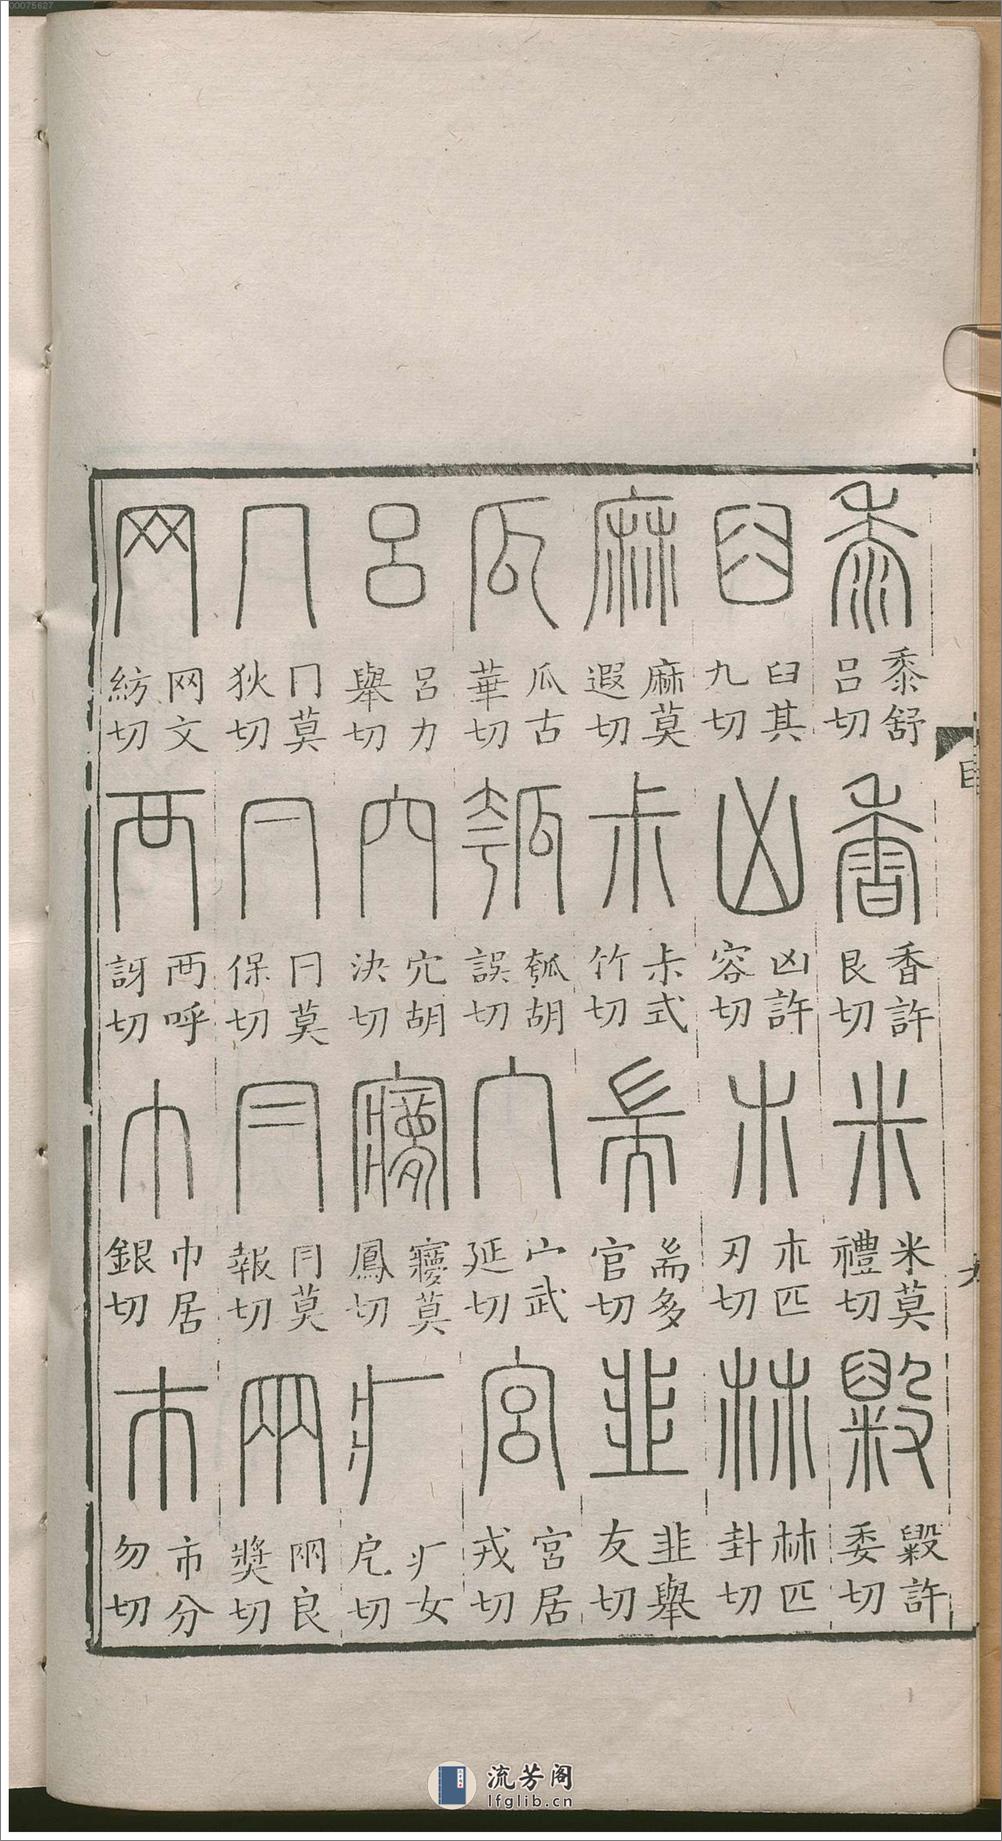 黍舒呂切
香許艮切
米莫禮切
毇許委切
臼其九切
凶許容切
朩匹刃切
𣏟匹卦切
麻莫遐切
尗式竹切
耑多官切
韭舉友切
瓜古華切
瓠胡誤切
宀武延切
宮居戎切
呂力舉切
穴胡決切
㝱莫鳳切
疒女戹切
冂莫狄切
冃莫保切
冃莫報切
㒳良獎切
网文紡切
襾呼訝切
巾居銀切
巿分勿切
00075627
流芳阁
lfglib.cn